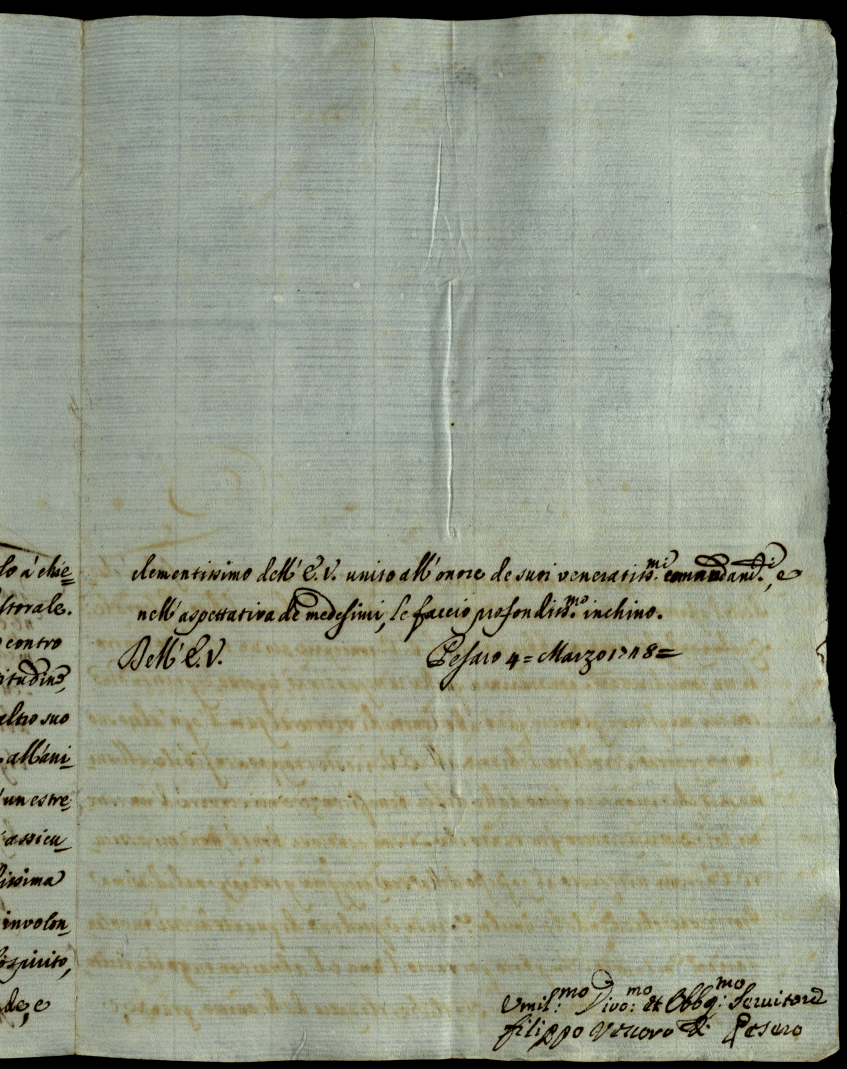 lo à chie=
ttorale.
contro
itudine,
altro suo
all'ani=
un estre=
assicu=
issima
involon=
spirito,
de, e
clementissimo dell'E.V. unito all'onore de suoi veneratiss:mi comandam:ti, e
nell'aspettativa de medesimi, le faccio profondiss:mo inchino.
Dell'E.V. Pesaro 4= Marzo 1748=
Umil:mo Divo:mo et Obbg:mo Servitore
filippo Vescovo di Pesaro